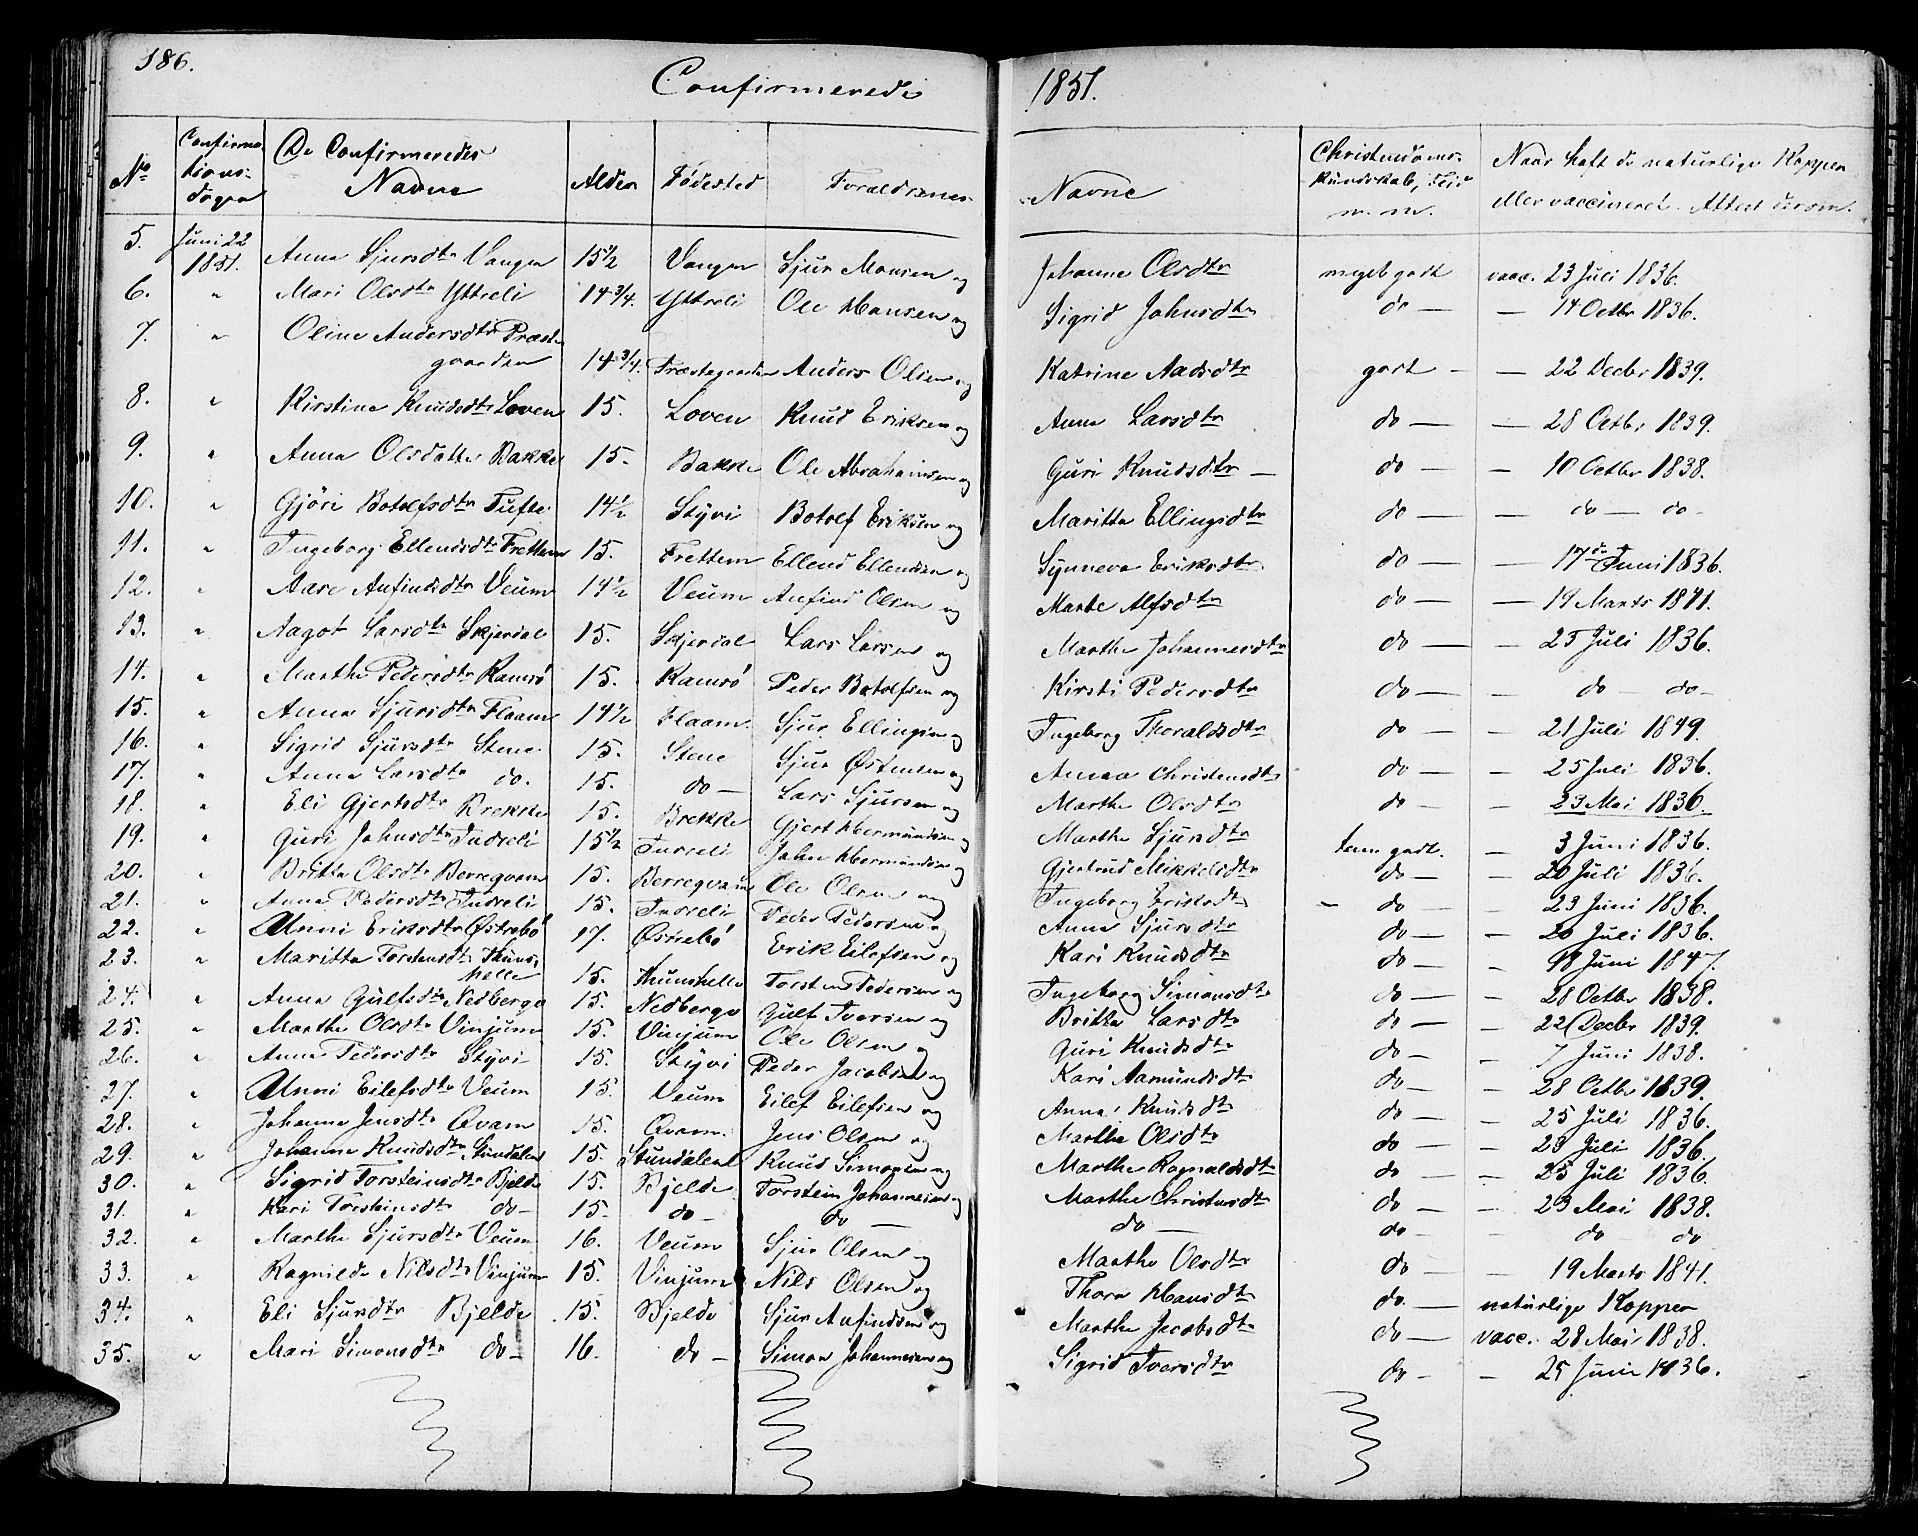 186.
Confirmerede 1851.
No Confirmationsdagen De Confirmeredes Navne Alder Fødested Forældrenes Navne Christendomskundskab, Flid m. m. Naar haft de naturlige Kopper eller vaccineret. Attest derom.
5. Juni 22 1851. Anna Sjursdtr Vangen 15½ Vangen Sjur Monsen og Johanne Olsdtr meget godt vacc. 23 Juli 1836.
6. " Mari Olsdtr Yttreli 14¾. Yttreli Ole Hansen og Sigrid Johnsdtr do — — 14 Octbr 1836.
7. " Oline Andersdtr Præstegaarden 14¾. Præstegaarden Anders Olsen og Katrine Aadsdtr godt - — 22 Decbr 1839.
8. " Kirstine Knudsdtr Loven 15. Loven Knud Eriksen og Anna Larsdtr do — — 28 Octbr 1839.
9. " Anna Olsdatter Bakke 15. Bakke Ole Abrahamsen og Guri Knudsdtr — do — — 10 Octbr 1838.
10. " Gjöri Botolfsdtr Tufte 14½ Styvi Botolf Eriksen og Maritta Ellingsdtr do — — do — do -
11. " Ingeborg Ellendsdtr Frettem 15. Frettem Ellend Ellendsen og Synneva Eriksdtr do — — 17de Juni 1836.
12. " Aase Anfindsdtr Veum 14½ Veum Anfind Olsen og Marte Alfsdtr do — — 19 Marts 1841.
13. " Aagot Larsdtr Skjerdal 15. Skjerdal Lars Larsen og Marthe Johannesdtr do — — 25 Juli 1836.
14. " Marthe Pedersdtr Ramsö 15. Ramsö Peder Botolfsen og Kirsti Pedersdtr do — — do — do -
15. " Anna Sjursdtr Flaam 14½ Flaam. Sjur Ellingsen og Ingeborg Thoraldsdtr do — — 21 Juli 1849.
16. " Sigrid Sjursdtr Stene 15. Stene Sjur Østensen og Anna Christensdtr do — — 25 Juli 1836.
17. " Anna Larsdtr do. 15. do — Lars Sjursen og Marthe Olsdtr do — — 23 Mai 1836.
18. " Eli Gjertsdtr Brekke 15. Brekke Gjert Hermundsen og Marthe Sjursdtr temm. godt. — 3 Juni 1836.
19. " Guri Johnsdtr Indreli 15½ Indreli John Hermundsen og Gjertrud Mikkelsdtr do — — 20 Juli 1836.
20. " Britta Olsdtr Berregvam 15. Berregvam Ole Olsen og Ingeborg Eriksdtr - do — — 23 Juni 1836.
21. " Anna Pedersdtr Indreli 15. Indreli Peder Pedersen og Anna Sjursdtr do — — 20 Juli 1836.
22. " Unni Eriksdtr Østrebö 17. Østrebö Erik Eilefsen og Kari Knudsdtr do — — 18 Juni 1847.
23. " Maritta Torstensdtr Thunshelle 15. Thunshelle Torsten Pedersen og Ingeborg Simonsdtr do — — 28 Octbr 1838.
24. " Anna Gultsdtr Nedberge 15. Nedberge Gult Iversen og Britta Larsdtr do — — 22 Decbr 1839.
25. " Marthe Olsdtr Vinjum 15. Vinjum Ole Olsen og Guri Knudsdtr do — - 7 Juni 1838.
26. " Anna Pedersdtr Styvi 15. Styvi Peder Jacobsen og Kari Aamundsdtr do — — 28 Octbr 1839.
27. " Unni Eilefsdtr Veum 15. Veum Eilef Eilefsen og Anna Knudsdtr do — — 25 Juli 1836.
28. " Johanna Jensdtr Qvam 15. Qvam. Jens Olsen og Martha Olsdtr do — — 23 Juli 1836.
29. " Johanna Knudsdtr Stundalen 15. Stundalen Knud Simonsen og Marthe Ragnaldsdtr do — — 25 Juli 1836.
30. " Sigrid Torsteinsdtr Bjelde 15. Bjelde Torstein Johannesen og Marthe Christensdtr do — — 23 Mai 1838.
31. " Kari Torsteinsdtr do- 15. do - do — do — do - — do do
32. " Marthe Sjursdtr Veum 16. Veum Sjur Olsen og Marthe Olsdtr do — — 19 Marts 1841.
33. " Ragnilda Nilsdtr Vinjum 15. Vinjum Nils Olsen og Thora Hansdtr do. — naturlige Kopper
34. " Eli Sjursdtr Bjelde 15. Bjelde Sjur Anfindsen og Marthe Jacobsdtr do — vacc. 28 Mai 1838.
35. " Mari Simonsdtr do - 16. do - Simon Johannesen og Sigrid Iversdtr do - - 25 Juni 1836.